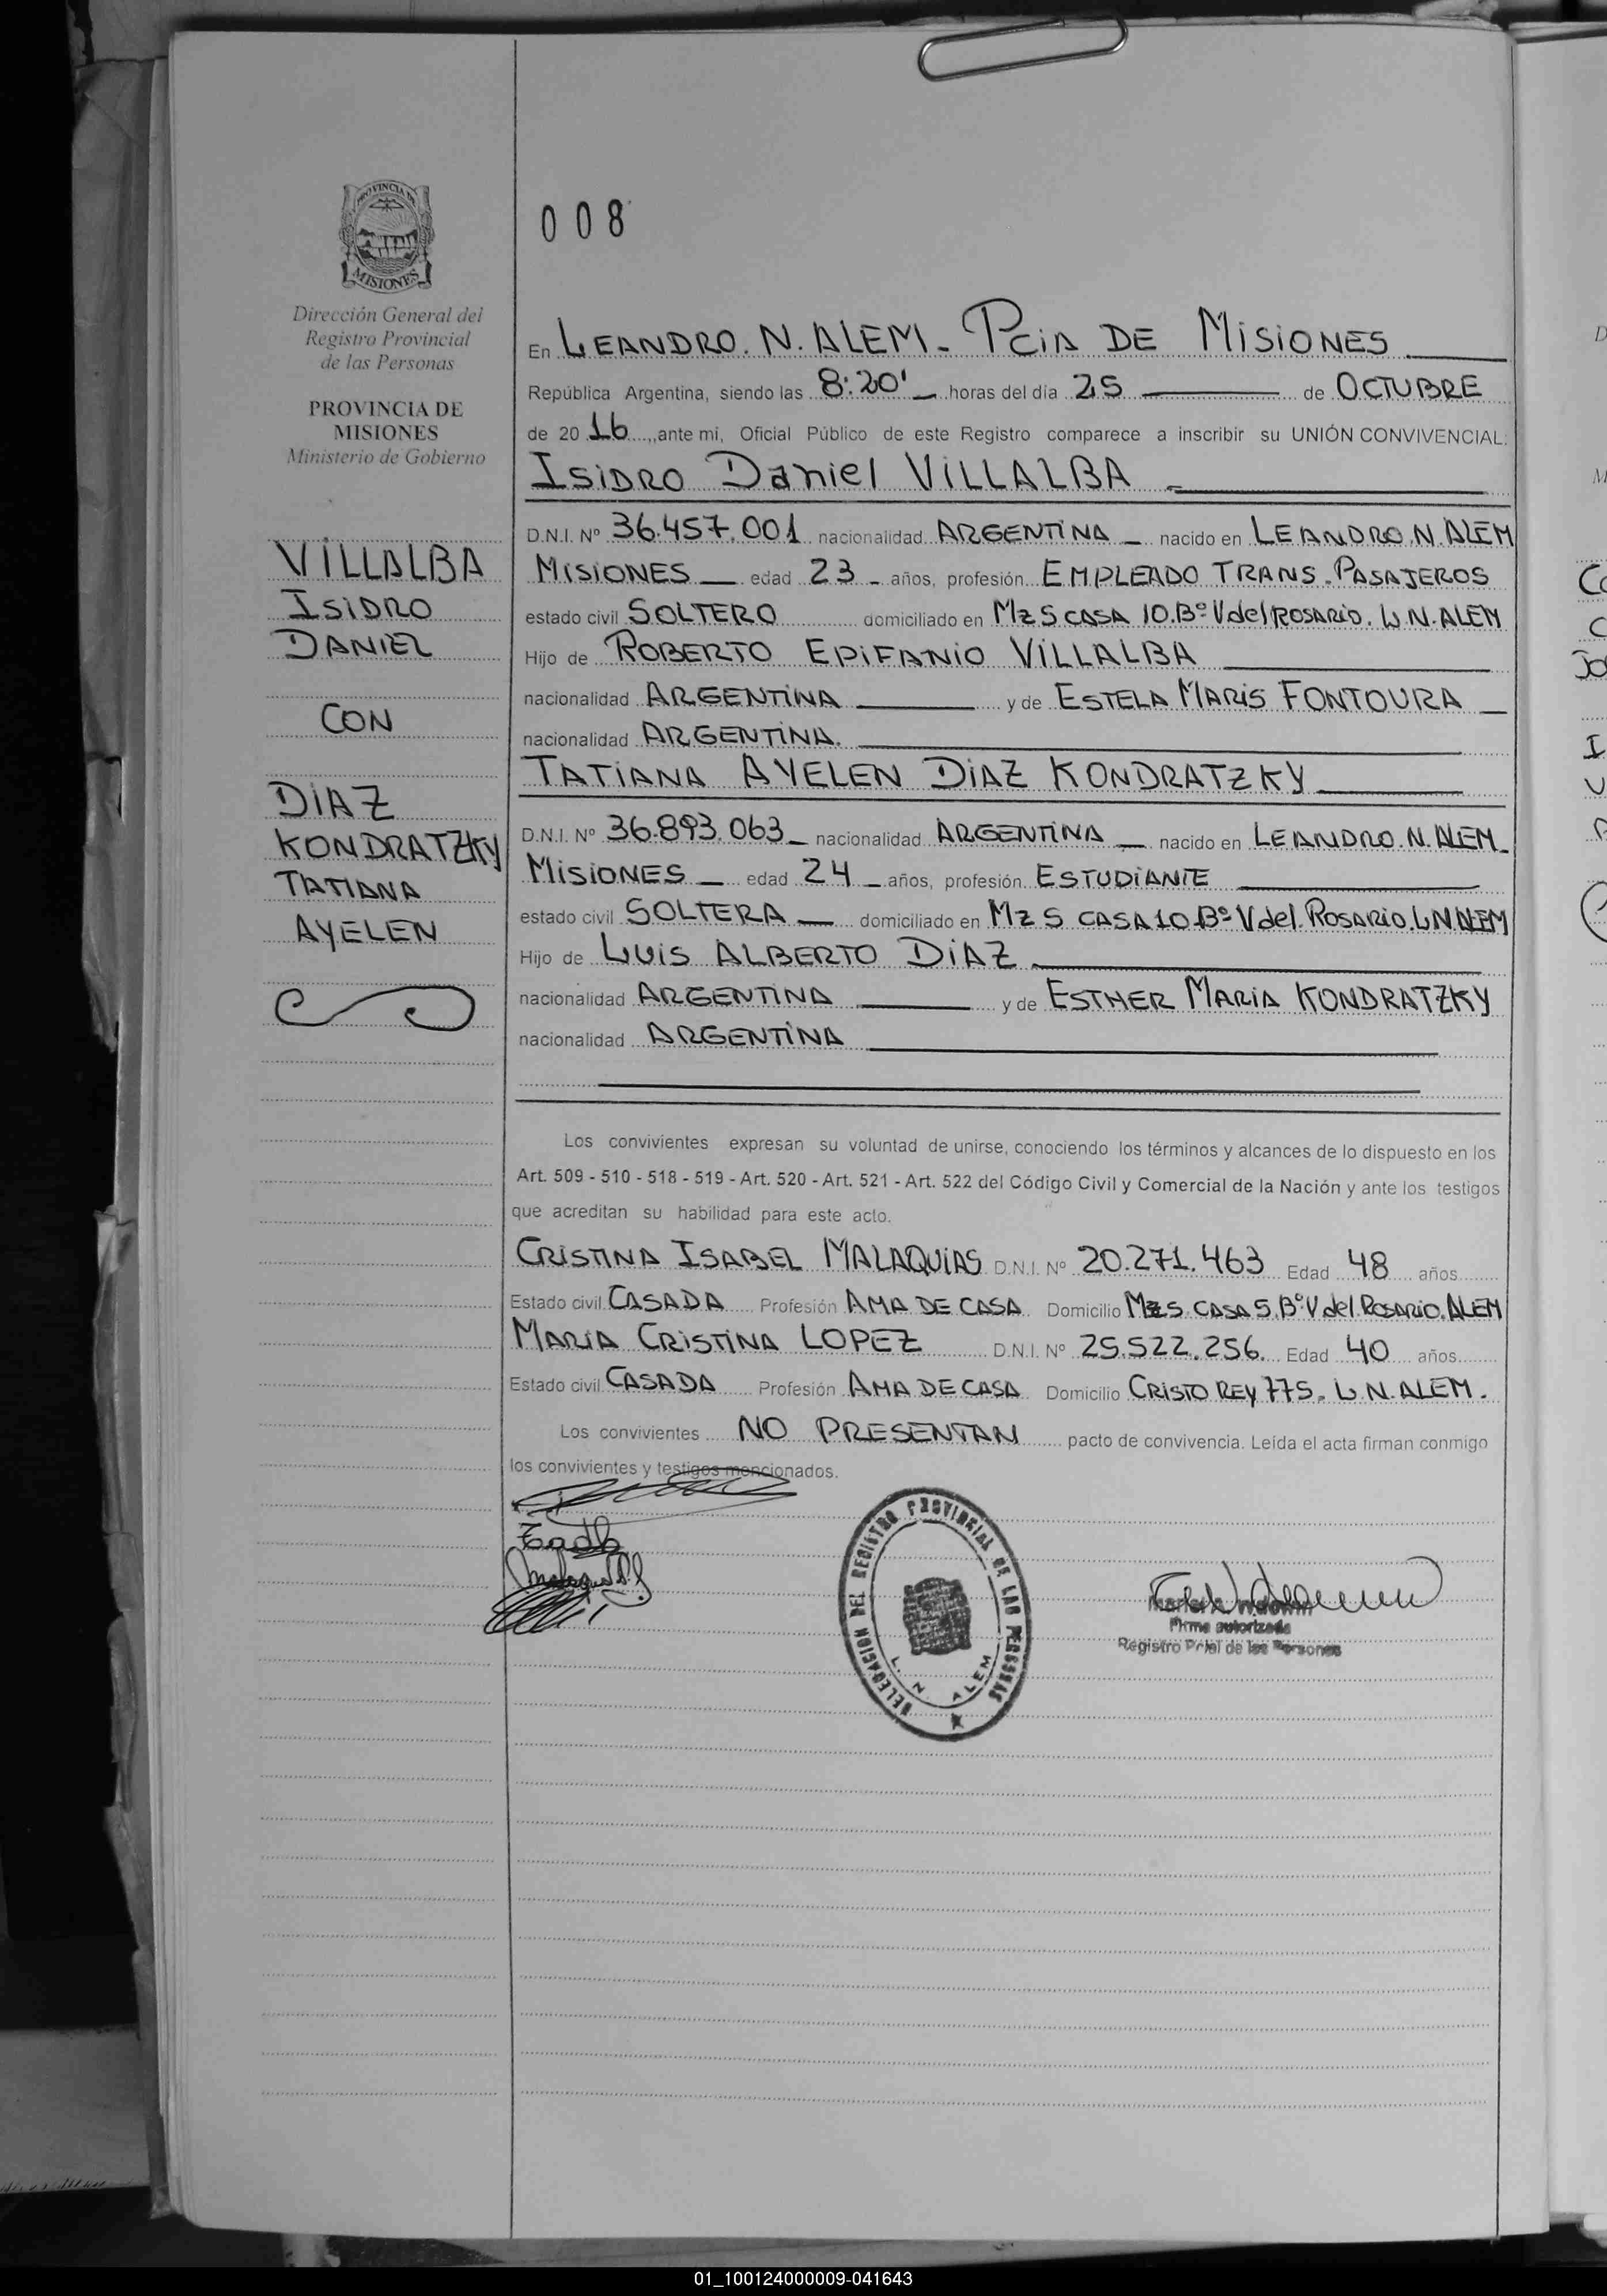 PROVINCIA DE
MISIONES
Dirección General del
Registro Provincial
de las Personas
PROVINCIA DE
MISIONES
Ministerio de Gobierno
VILLALBA
ISIDRO
DANIEL
CON
DIAZ
KONDRATZKY
TATIANA
AYELEN
008
En LEANDRO. N. ALEM - PCIA DE MISIONES
República Argentina, siendo las 8:20' horas del día 25 de OCTUBRE
de 20 16, ante mí, Oficial Público de este Registro comparece a inscribir su UNIÓN CONVIVENCIAL:
ISIDRO Daniel VILLALBA
D.N.I. Nº 36.457.001 nacionalidad ARGENTINA nacido en LEANDRO.N.ALEM
MISIONES edad 23 años, profesión EMPLEADO TRANS. PASAJEROS
estado civil SOLTERO domiciliado en Mz 5 CASA 10.Bº V del ROSARIO. L.N.ALEM
Hijo de ROBERTO EPIFANIO VILLALBA
nacionalidad ARGENTINA y de ESTELA MARIS FONTOURA
nacionalidad ARGENTINA.
TATIANA AYELEN DIAZ KONDRATZKY
D.N.I. Nº 36.893.063 nacionalidad ARGENTINA nacido en LEANDRO.N.ALEM
MISIONES edad 24 años, profesión ESTUDIANTE
estado civil SOLTERA domiciliado en Mz 5 CASA 10 Bº V del ROSARIO. L N ALEM
Hijo de LUIS ALBERTO DIAZ
nacionalidad ARGENTINA y de ESTHER MARIA KONDRATZKY
nacionalidad ARGENTINA
Los convivientes expresan su voluntad de unirse, conociendo los términos y alcances de lo dispuesto en los
Art. 509 - 510 - 518 - 519 - Art. 520 - Art. 521 - Art. 522 del Código Civil y Comercial de la Nación y ante los testigos
que acreditan su habilidad para este acto.
CRISTINA ISABEL MALAQUIAS D.N.I. Nº 20.271.463 Edad 48 años
Estado civil CASADA Profesión AMA DE CASA Domicilio Mz 5 CASA 5 Bº V del ROSARIO. ALEM
MARIA CRISTINA LOPEZ D.N.I. Nº 25.522.256. Edad 40 años
Estado civil CASADA Profesión AMA DE CASA Domicilio CRISTO REY 775. L.N.ALEM.
Los convivientes NO PRESENTAN pacto de convivencia. Leída el acta firman conmigo
los convivientes y testigos mencionados.
DELEGACION DEL REGISTRO PROVINCIAL DE LAS PERSONAS
L. N. ALEM
Firma autorizada
Registro Pcial de las Personas
01_100124000009-041643